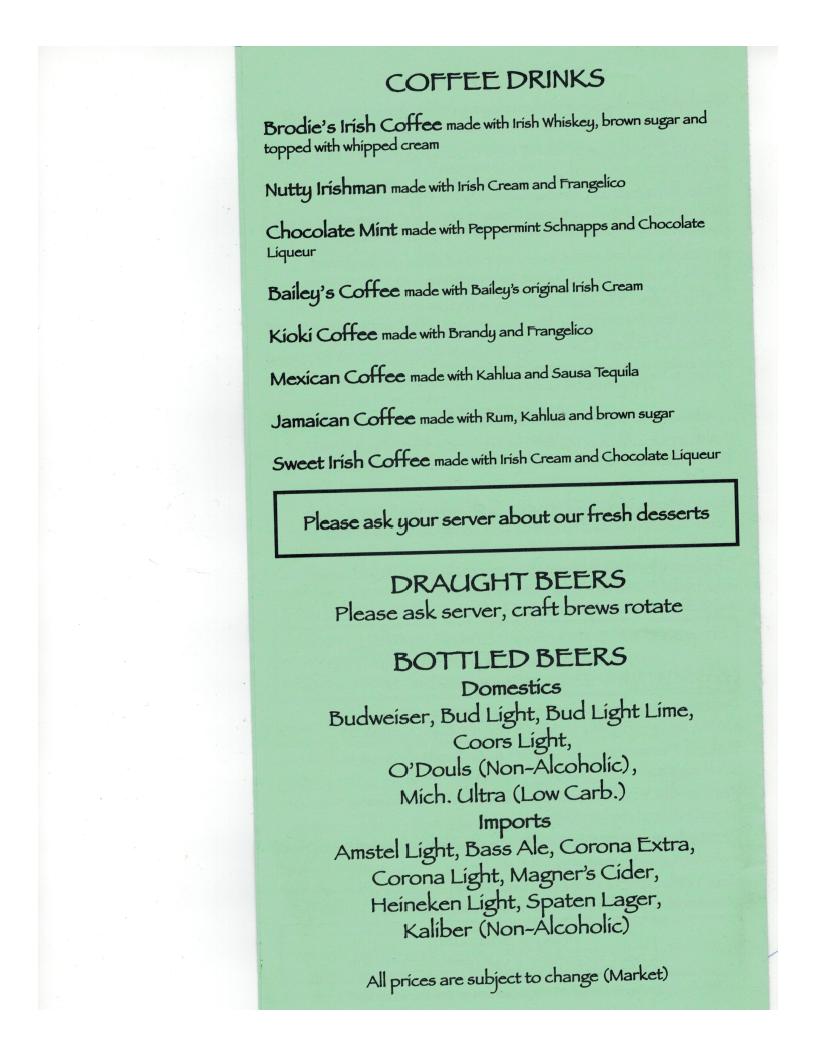 COFFEE DRINKS
Brodie's Irish Coffee made with Irish Whiskey, brown sugar and
topped with whipped cream
Nutty Irishman made with Irish Cream and Frangelico
Chocolate Mint made with Peppermint Schnapps and Chocolate
Liqueur
Bailey's Coffee made with Bailey's original Irish Cream
Kioki Coffee made with Brandy and Frangelico
Mexican Coffee made with Kahlua and Sausa Tequila
Jamaican Coffee made with Rum, Kahlua and brown sugar
Sweet Irish Coffee made with Irish Cream and Chocolate Liqueur
Please ask your server about our fresh desserts
DRAUGHT BEERS
Please ask server, craft brews rotate
BOTTLED BEERS
Domestics
Budweiser, Bud Light, Bud Light Lime,
Coors Light,
O'Douls (Non-Alcoholic),
Mich. Ultra (Low Carb.)
Imports
Amstel Light, Bass Ale, Corona Extra,
Corona Light, Magner's Cider,
Heineken Light, Spaten Lager,
Kaliber (Non-Alcoholic)
All prices are subject to change (Market)